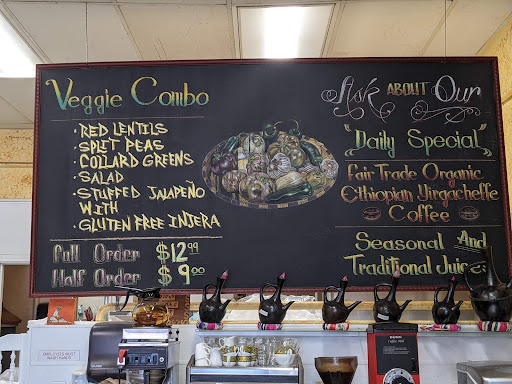 Veggie Combo
• RED LENTILS
• SPLIT PEAS
• COLLARD GREENS
• SALAD
• STUFFED JALAPEÑO
WITH
• GLUTEN FREE INJERA
Full Order $12.99
Half Order $9.00
Ask ABOUT Our
"Daily Special"
Fair Trade Organic
Ethiopian Yirgacheffe
Coffee
Seasonal And
Traditional Juices
EMPLOYEES MUST
WASH HANDS